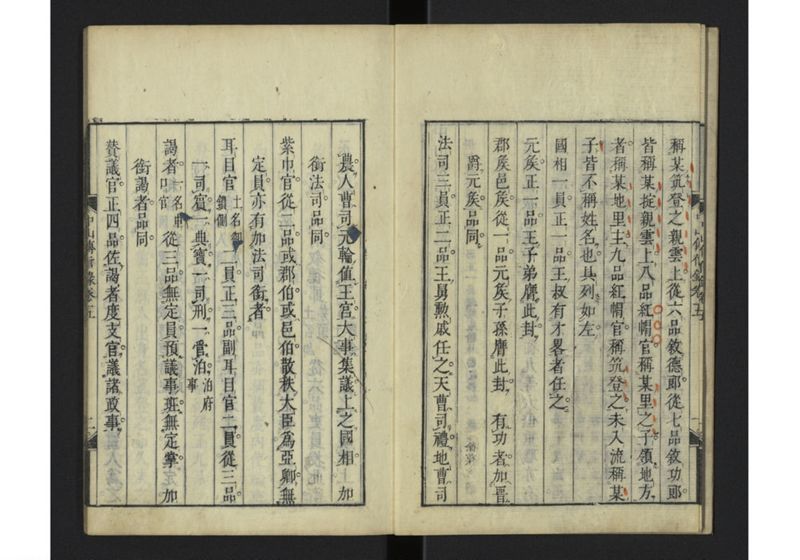 稱某筑登之親雲上從六品敘德郎從七品敘功郎
皆稱某掟親雲上八品紅㡌官稱某里之子領地方
者稱某地里主九品紅㡌官稱筑登之未入流稱某
子皆不稱姓名也具列如左
國相一員正一品王叔有才畧者任之
元矦正一品王子弟膺此封
郡矦邑矦從一品元矦子孫膺此封 有功者加晋
爵元矦品同
法司三員正二品王舅勲戚任之天曹司禮地曹司
農人曹司元輪值王宮大事集議上之國相 加
銜法司品同
紫巾官從二品或郡伯或邑伯散秩大臣爲亞卿無
定員亦有加法司銜者
耳目官 土名 鎖側 一員正三品副耳目官二員從三品
一司賓一典寶一司刑一管泊 泊府事
謁者 名申口官 從三品無定員預議事班無定掌 加
銜謁者品同
賛議官正四品佐謁者度支官議諸政事
中山傳信錄卷五
二